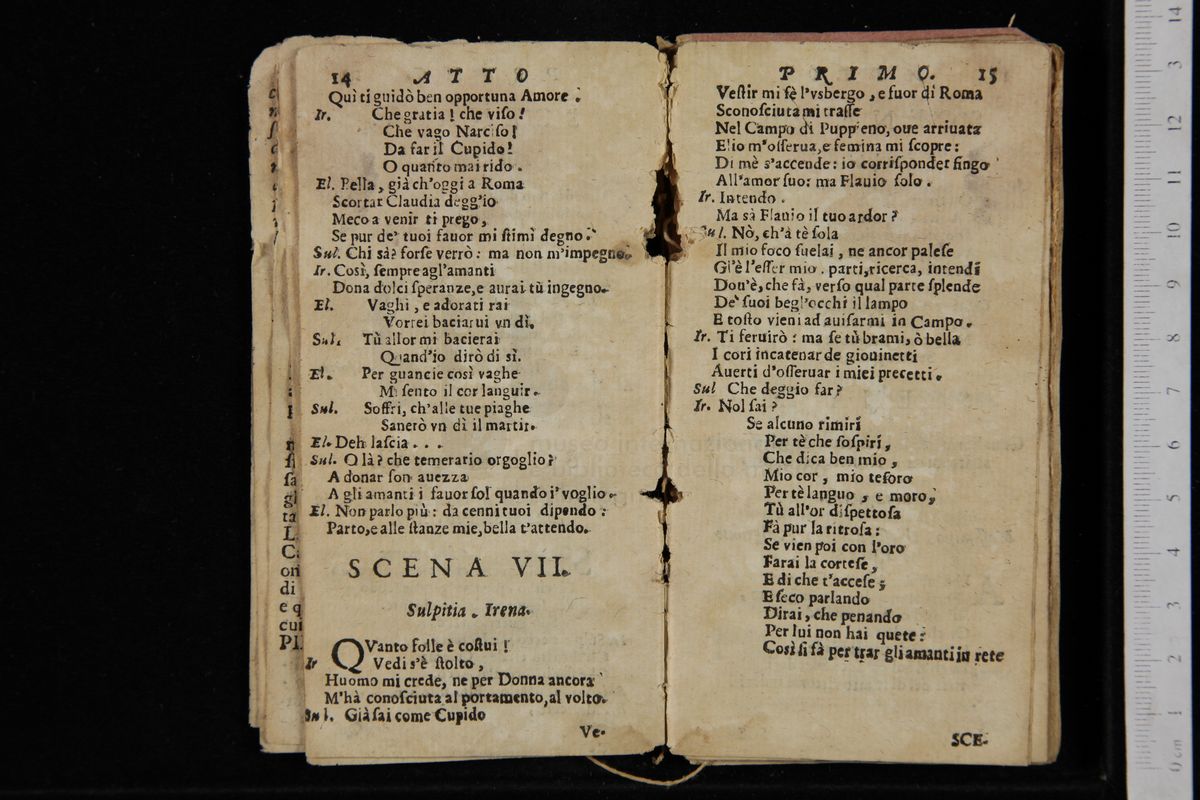 14 ATTO
Quì ti guidò ben opportuna Amore.
Ir. Che gratia! che viso!
Che vago Narciso!
Da far il Cupido!
O quanto mai rido.
El. Bella, già ch'oggi a Roma
Scortar Claudia degg'io
Meco a venir ti prego,
Se pur de' tuoi fauor mi stimi degno.
Sul. Chi sà? forse verrò: ma non m'impegno.
Ir. Così, sempre agl'amanti
Dona dolci speranze, e aurai tù ingegno.
El. Vaghi, e adorati rai
Vorrei baciarui vn dì.
Sul. Tù allor mi bacierai
Quand'io dirò di sì.
El. Per guancie così vaghe
Mi sento il cor languir.
Sul. Soffri, ch'alle tue piaghe
Sanerò vn dì il martir.
El. Deh lascia...
Sul. O là? che temerario orgoglio?
A donar son auezza
A gli amanti i fauor sol quando i' voglio.
El. Non parlo più: da cenni tuoi dipendo:
Parto, e alle stanze mie, bella t'attendo.
SCENA VII.
Sulpitia. Irena.
QVanto folle è costui!
Ir Vedi s'è stolto,
Huomo mi crede, ne per Donna ancora
M'hà conosciuta al portamento, al volto.
Sul. Già sai come Cupido
Ve-
PRIMO. 15
Vestir mi fè l'vsbergo, e fuor di Roma
Sconosciuta mi trasse
Nel Campo di Puppieno, oue arriuata
Elio m'osserua, e femina mi scopre:
Di mè s'accende: io corrisponder fingo
All'amor suo: ma Flauio solo.
Ir. Intendo.
Ma sà Flauio il tuo ardor?
Sul. Nò, ch'à tè sola
Il mio foco suelai, ne ancor palese
Gl'è l'esser mio. parti, ricerca, intendi
Dou'è, che fà, verso qual parte splende
De' suoi begl'occhi il lampo
E tosto vieni ad auisarmi in Campo.
Ir. Ti seruirò: ma se tù brami, ò bella
I cori incatenar de giouinetti
Auerti d'osseruar i miei precetti.
Sul Che deggio far?
Ir. Nol sai?
Se alcuno rimiri
Per tè che sospiri,
Che dica ben mio,
Mio cor, mio tesoro
Per tè languo, e moro,
Tù all'or dispettosa
Fà pur la ritrosa:
Se vien poi con l'oro
Farai la cortese,
E di che t'accese;
E seco parlando
Dirai, che penando
Per lui non hai quete:
Così si fà per trar gli amanti in rete
SCE-